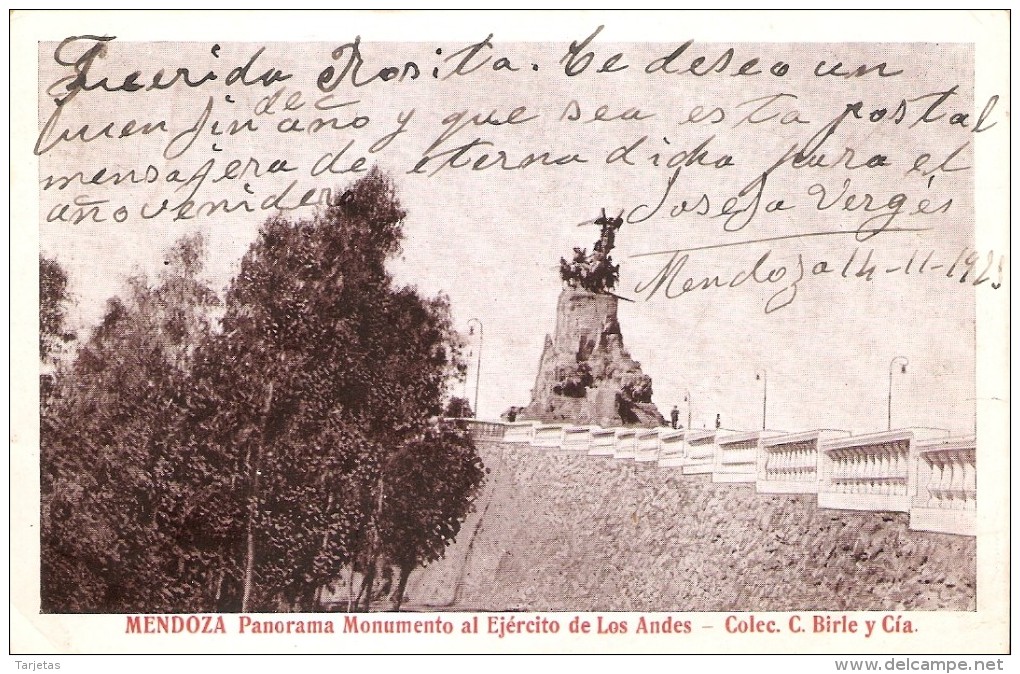 Querida Rosita. Te deseo un
buen fin de año y que sea esta postal
mensajera de eterna dicha para el
año venidero
Josefa Vergés
Mendoza 14-11-192
MENDOZA Panorama Monumento al Ejército de Los Andes – Colec. C. Birle y Cía.
Tarjetas
www.delcampe.net